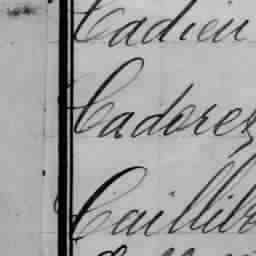 Cadieu
Cadorez
Caillib